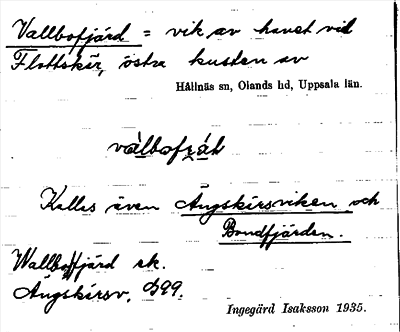 Vallbofjärd = vik av havet vid
Flottskär, östra kusten av
Hållnäs sn, Olands hd, Uppsala län.
Kallas även Ängskärsviken och
Bondfjärden.
Wallbofjärd sk.
Ängskärsv.
Ingegärd Isaksson 1935.